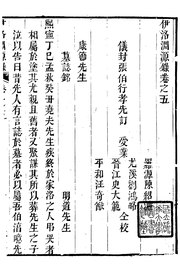 伊洛淵源錄卷之五
儀封張伯行孝先訂 受業
羅源陳紹濂
尤溪劉鴻略
晉江史大範 仝校
平和汪奇猷
康節先生
墓誌銘 明道先生
熙寧丁巳孟秋癸丑堯夫先生疾終於家洛之人弔哭者
相屬於途其尤親且舊者又聚謀其所以葬先生之子
泣以告曰昔先人有言誌於墓者必以屬吾伯淳噫先